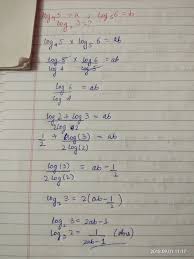 log₄5 = a , log₅6 = b
log₃2 = ?
log₄5 × log₅6 = ab
log 5 / log 4 × log 6 / log 5 = ab
log 6 / log 4 = ab
log 2 + log 3 / 2 log 2 = ab
1/2 + log(3) / 2 log(2) = ab
log(3) / 2 log(2) = ab - 1/2
log₂3 = 2(ab - 1/2)
log₂3 = 2ab - 1
log₃2 = 1 / 2ab - 1 (Ans)